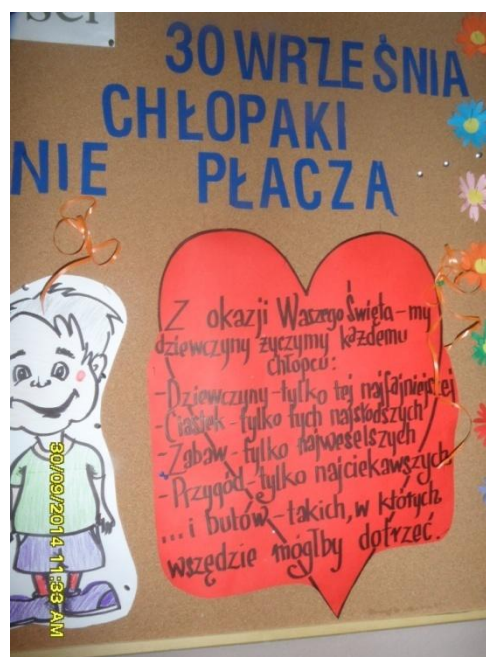 ŚCI
30 WRZEŚNIA
CHŁOPAKI
NIE PŁACZĄ
Z okazji Waszego Święta - my
dziewczyny życzymy każdemu
chłopcu:
- Dziewczyny - tylko tej najfajniejszej
- Ciastek - tylko tych najsłodszych
- Zabaw - tylko najweselszych
- Przygód - tylko najciekawszych
... i butów - takich, w których
wszędzie mógłby dotrzeć.
30/09/2014 11:33 AM